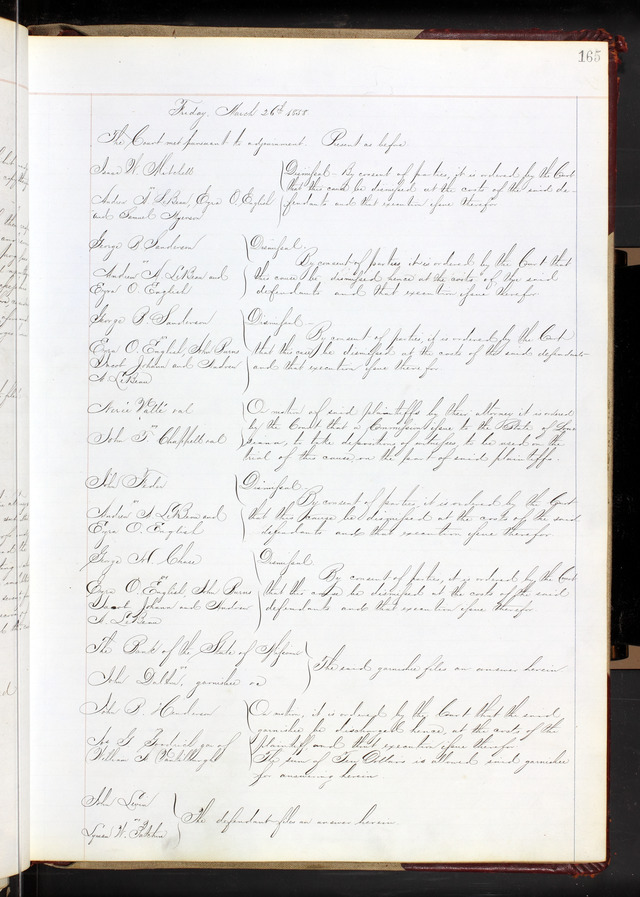 165
Friday, March 26th 1858
The Court met pursuant to adjournment. Present as before
W.
Dismissal - By consent of parties, it is ordered by the Court
that this cause be dismissed at the costs of the said de-
fendants and that execution issue therefor
Andrew A. LeBeau, Ezra O. English
and Samuel
George B. Sanderson
vs
Andrew A. LeBeau and
Ezra O. English
Dismissal.
By consent of parties, it is ordered by the Court that
this cause be dismissed hence at the costs of the said
defendants and that execution issue therefor
George B. Sanderson
vs
Ezra O. English, John Burns
Jacob and Andrew
A. LeBeau
Dismissal
By consent of parties, it is ordered by the Court
that this cause be dismissed at the costs of the said defendants
and that execution issue therefor
et al
vs
John T. Chappell et al
On motion of said plaintiffs by their attorney it is ordered
by the Court that a Commission issue to the State of
to take depositions of witnesses to be used in the
trial of this cause, on the part of said plaintiffs.
John
vs
Andrew A. LeBeau and
Ezra O. English
Dismissal
By consent of parties it is ordered by the Court
that this cause be dismissed at the costs of the said
defendants and that execution issue therefor
George H. Chase
vs
Ezra O. English, John Burns
Jacob and Andrew
A. LeBeau
Dismissal
By consent of parties, it is ordered by the Court
that this cause be dismissed at the costs of the said
defendants and that execution issue therefor
The Bank of the State of Missouri
vs
John garnishee &c
The said garnishee files an answer herein
John P. Henderson
vs
gar of
William
On motion, it is ordered by the Court that the said
garnishee be discharged hence, at the costs of the
plaintiff and that execution issue therefor
The sum of Ten Dollars is allowed said garnishee
for answering herein
John
vs
Lyman W. Patchin
The defendant files an answer herein